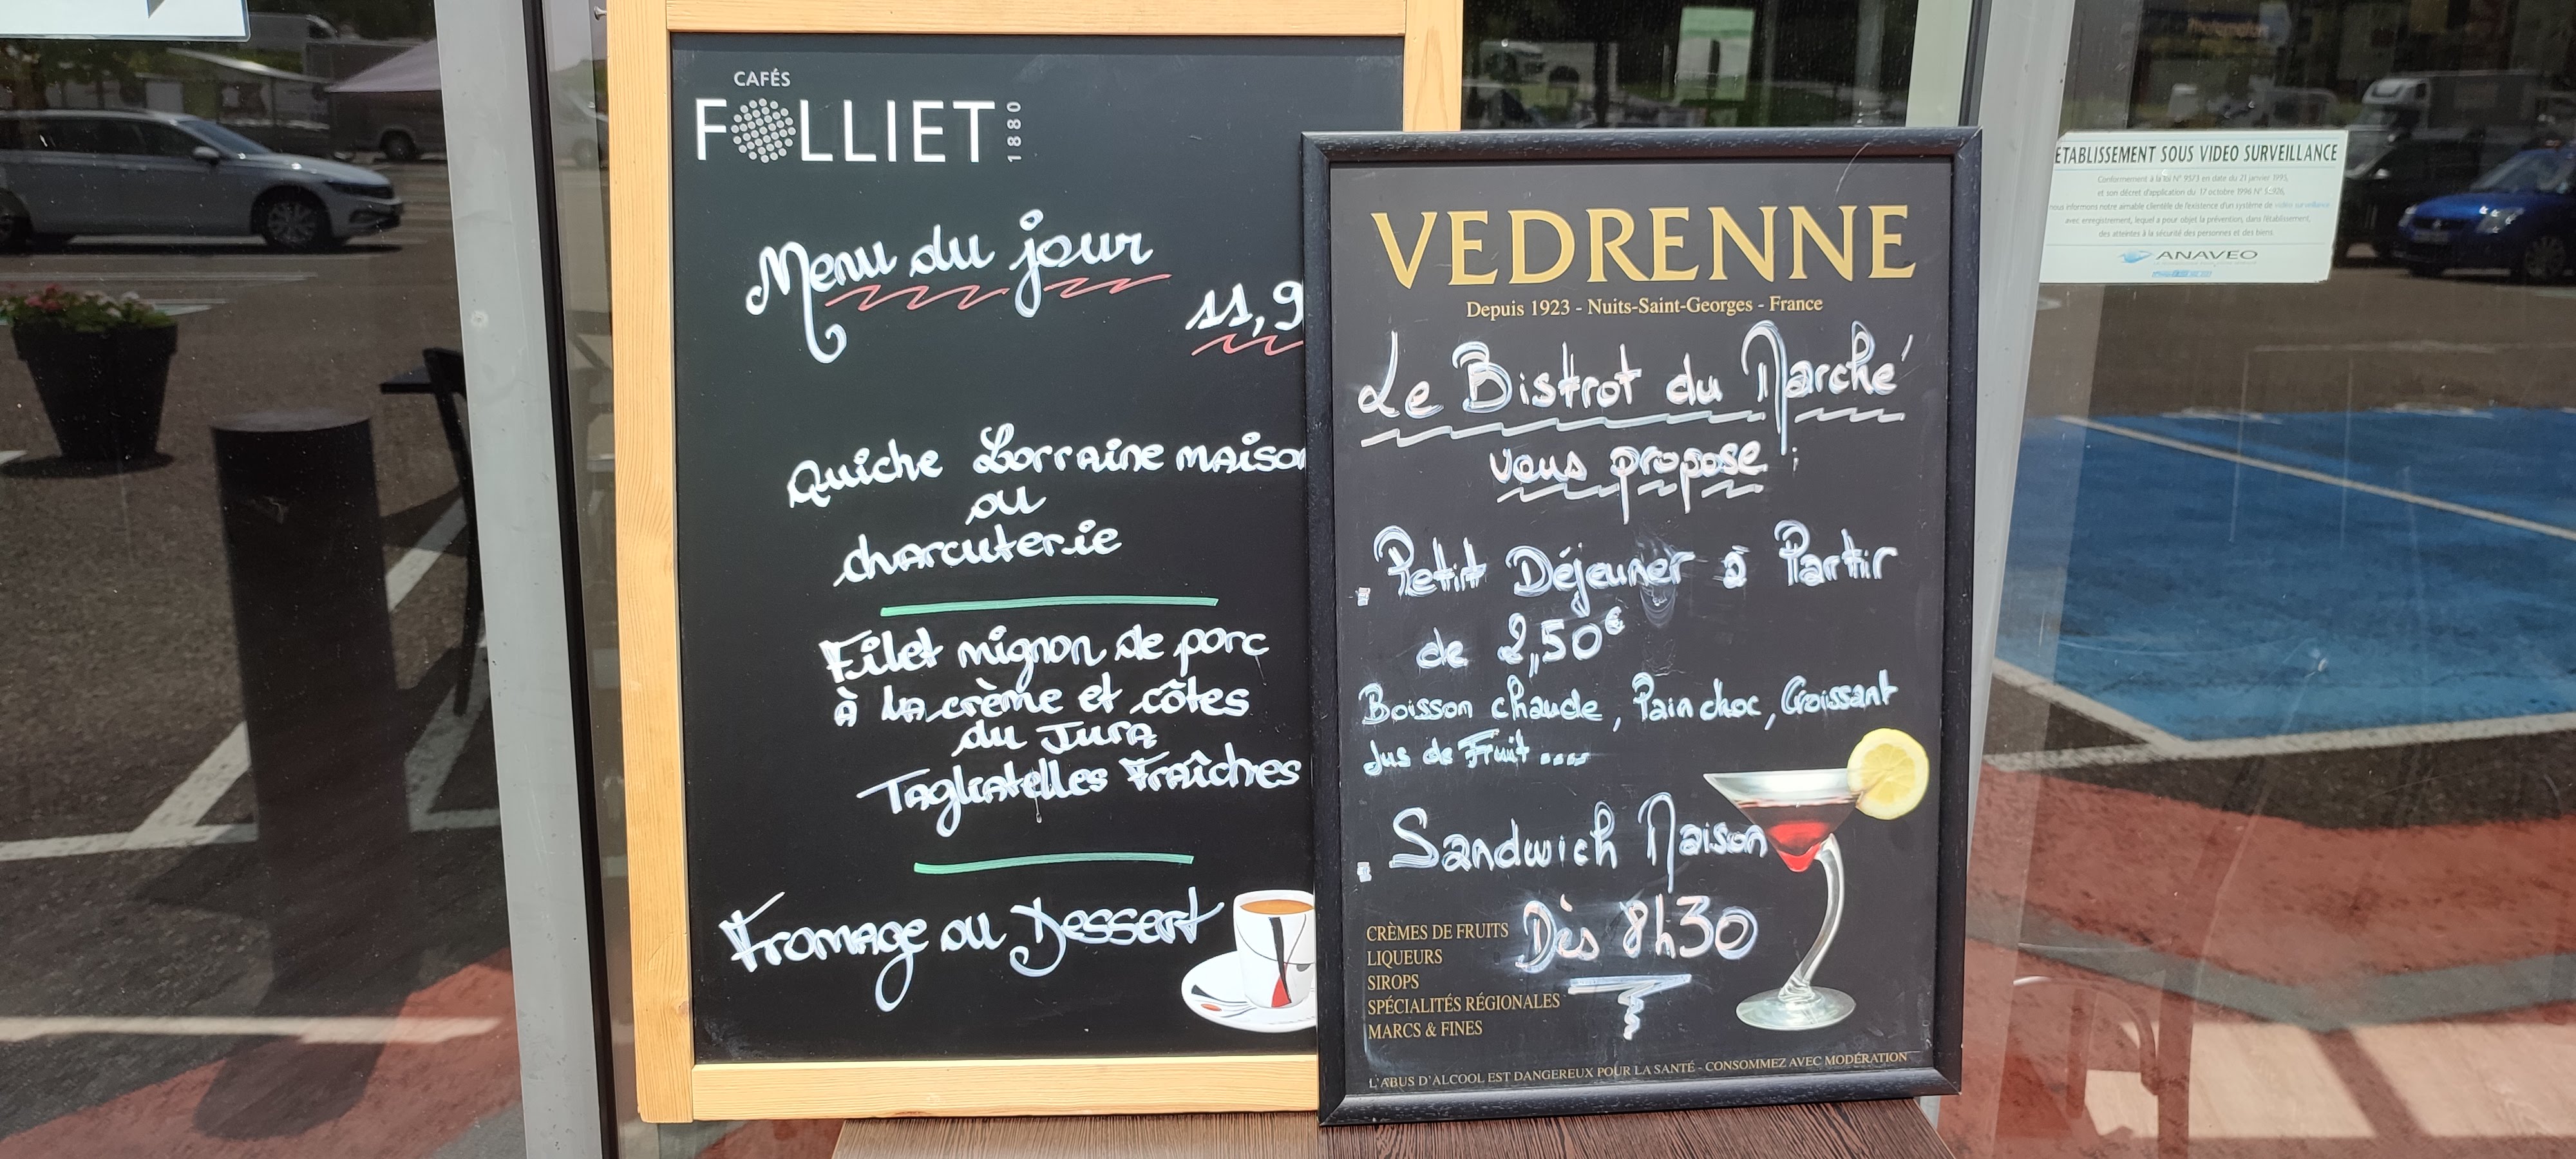 CAFÉS
FOLLIET
1880
Menu du jour
11,9
Quiche Lorraine maison
ou
charcuterie
Filet mignon de porc
à la crème et côtes
du Jura
Tagliatelles Fraîches
Fromage ou Dessert
VEDRENNE
Depuis 1923 - Nuits-Saint-Georges - France
Le Bistrot du Marché
vous propose :
. Petit Déjeuner à Partir
de 2,50€
Boisson chaude, Pain choc, Croissant
Jus de Fruit ....
. Sandwich Maison
Dès 8h30
CRÈMES DE FRUITS
LIQUEURS
SIROPS
SPÉCIALITÉS RÉGIONALES
MARCS & FINES
L'ABUS D'ALCOOL EST DANGEREUX POUR LA SANTÉ - CONSOMMEZ AVEC MODÉRATION
ETABLISSEMENT SOUS VIDEO SURVEILLANCE
Conformément à la loi N° 9573 en date du 21 janvier 1995,
et son décret d'application du 17 octobre 1996 N°
nous informons notre aimable clientèle de l'existence d'un système de vidéo surveillance
avec enregistrement, lequel a pour objet la prévention, dans l'établissement,
des atteintes à la sécurité des personnes et des biens
ANAVEO